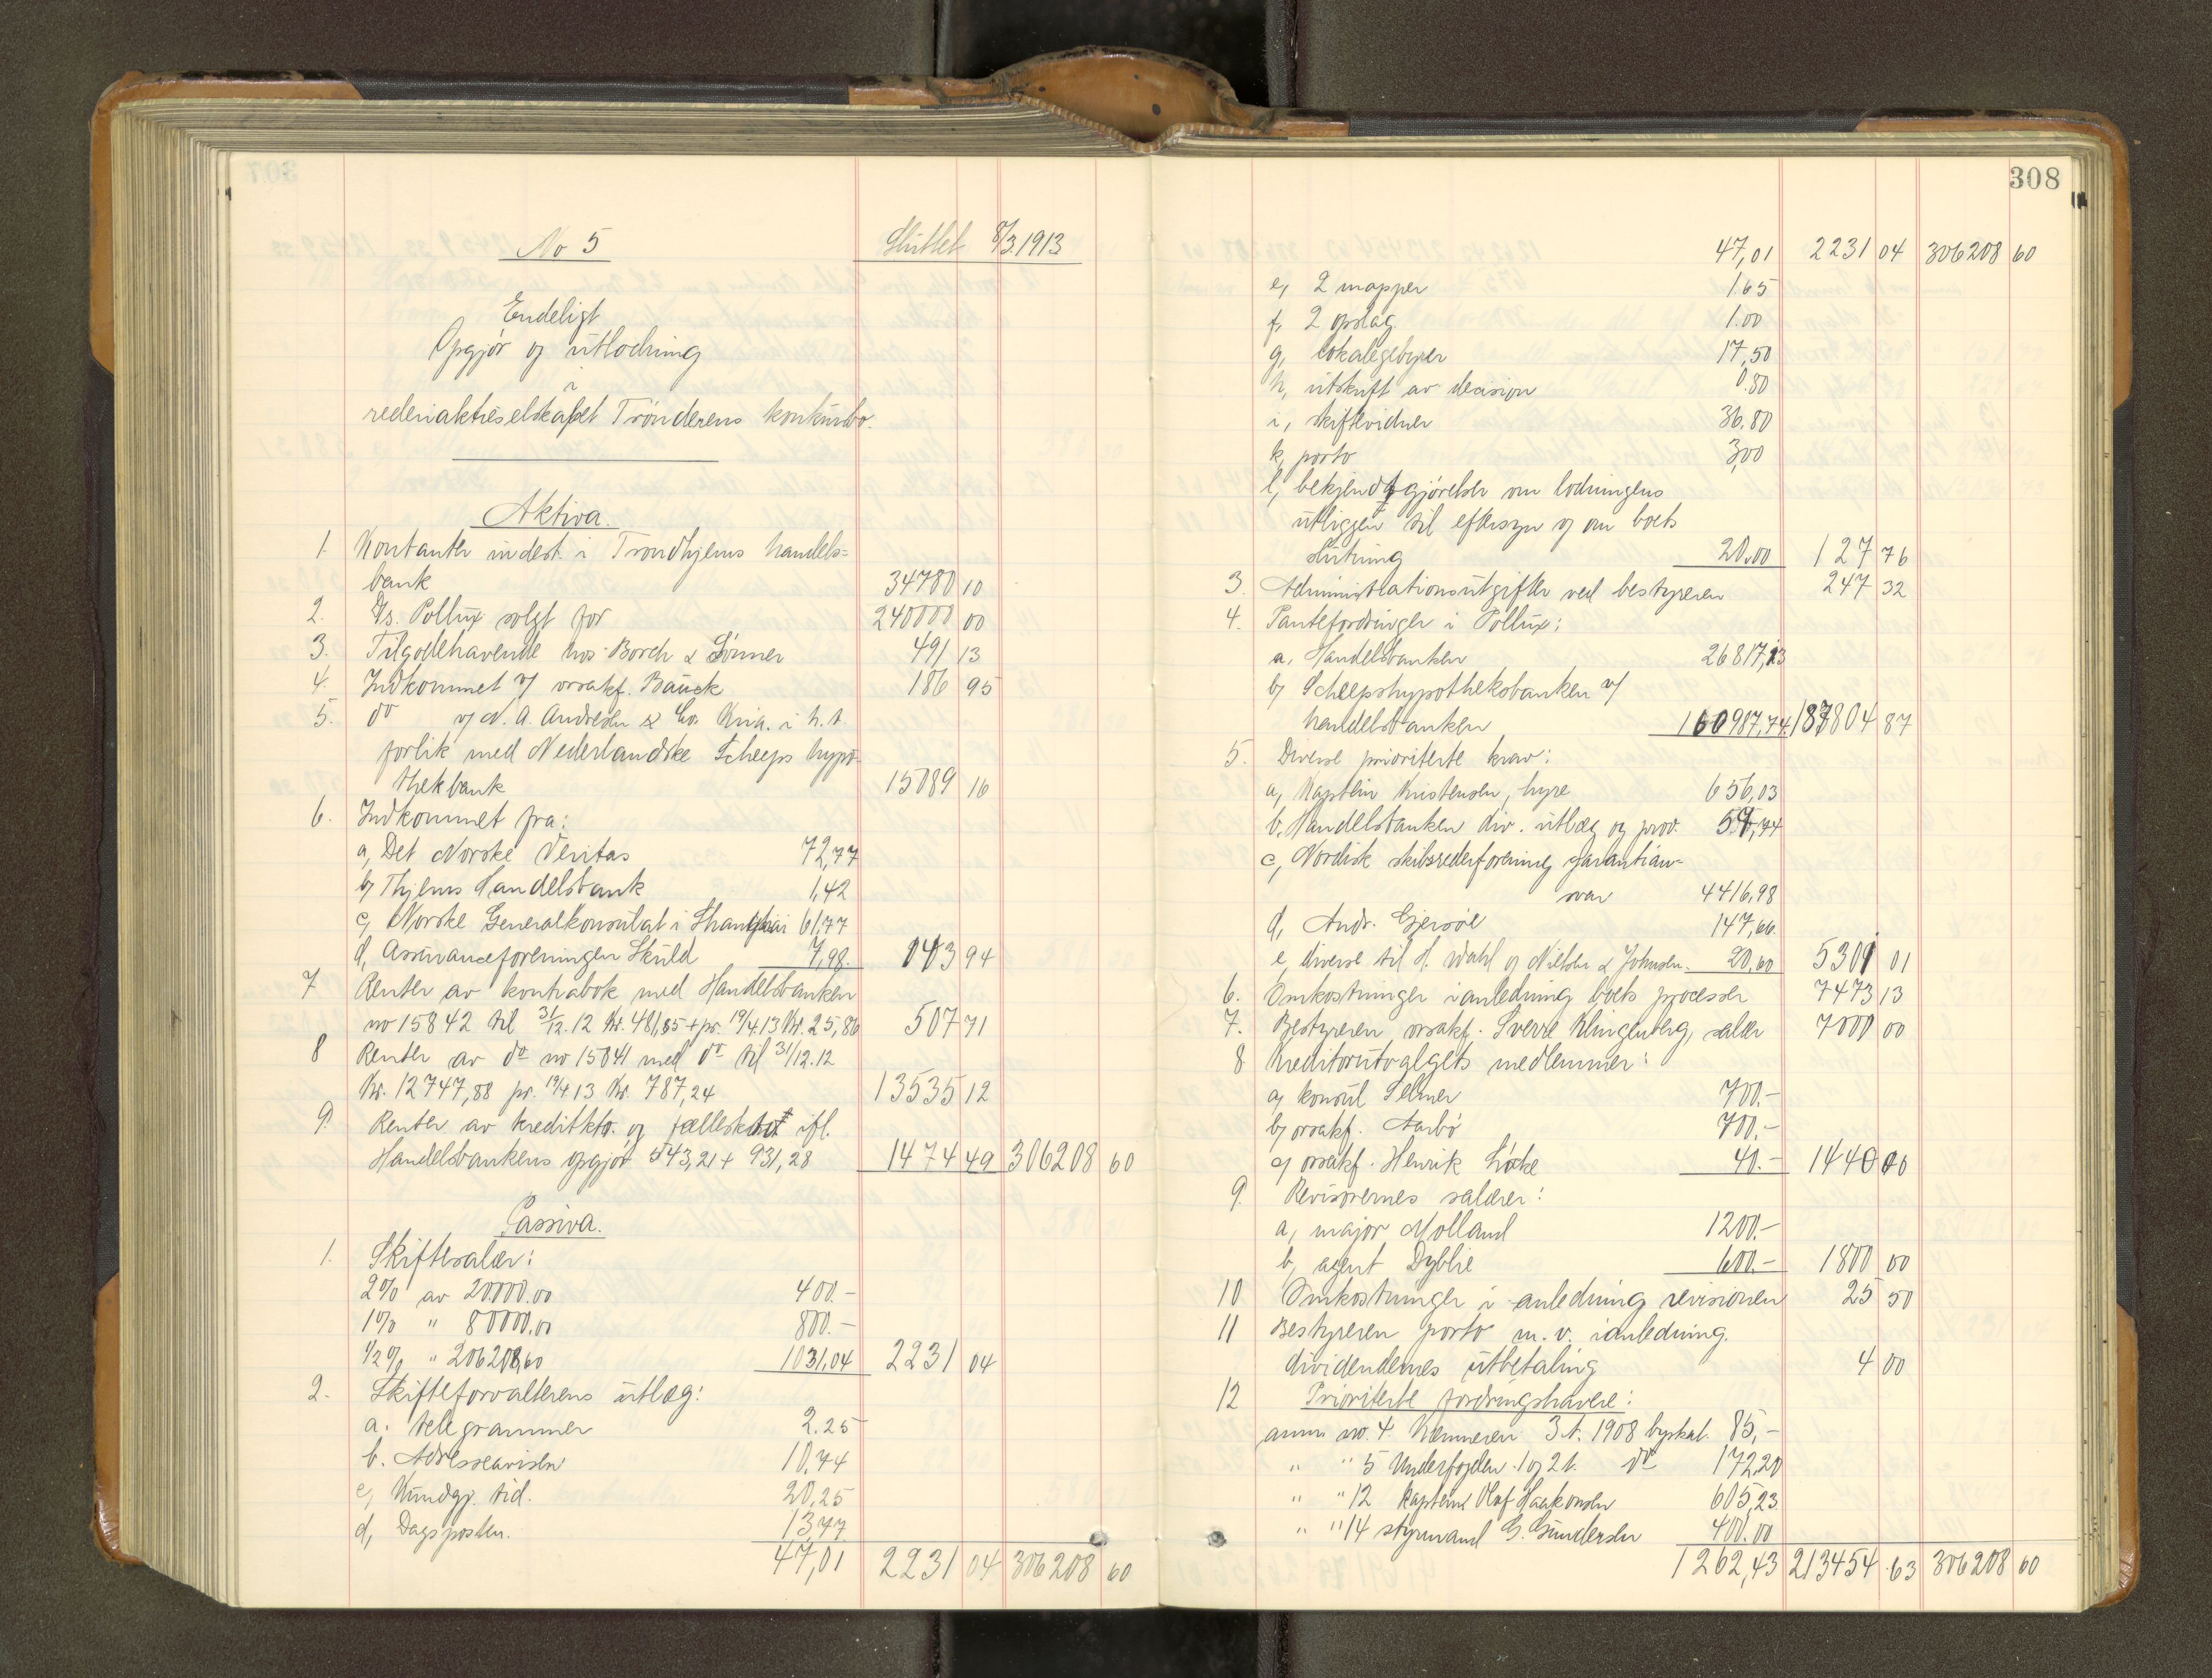 No 5 Sluttet 8/3.1913
Endeligt
Opgjør og utlodning
i
rederiaktieselskapet Trönderens konkursbo.
Aktiva.
1. Kontanter indest. i Trondhjems handels=
bank 34780 10
2. D/s. Pollux solgt for 240000 00
3. Tilgodehavende hos Borch & Sönner 491 13
4. Indkommet v/ orsakf. Bauck 186 95
5. do v/ N. A. Andresen & Co. Kria. i h. t.
forlik med Nederlandske Scheeps hypo-
thekbank 15089 16
6. Indkommet fra:
a, Det Norske Veritas 72,77
b, Thjems Handelsbank 1,42
c, Norske Generalkonsulat i Shanghai 61,77
d, Assuranceforeningen Skuld 7,98. 143 94
7 Renter av kontrabok med Handelsbanken
no 15842 til 31/12.12 Kr. 481,85 + pr. 19/4.13 Kr. 25,86 507 71
8 Renter av do no 15841 med do til 31/12.12
Kr. 12747,88 pr. 19/4 13 Kr. 787,24 13535 12
9. Renter av kreditkto. og fælleskto ifl.
Handelsbankens opgjør 543,21 + 931,28 1474 49 306208 60
Passiva.
1. Skiftesalær:
2% av 20.000.00 400.-
1% " 80000.00 800.-
1/2% " 206208,60 1031,04 2231 04
2. Skifteforvalterens utlæg:
a. telegrammer 2.25
b. Adresseavisen 10,74
c, Kundgj. tid. 20,25
d, Dagsposten. 13,77
47,01 2231 04 306208 60
308
47,01 2231 04 306208 60
e, 2 mapper 1.65
f, 2 opslag 1.00
g, lokalegebyrer 17,50
h, utskrift av decision 0.80
i, skiftevidner 36,80
k, porto 3,00
l, bekjendtgjörelse om lodningens
utliggen til eftersyn og om boets
slutning 20.00 127 76
3. Administrationsutgifter ved bestyreren 247 32
4. Pantefordringer i Pollux:
a, Handelsbanken 26817,13
b, Scheepshypothekbanken v/
handelsbanken 160987,74 187804 87
5. Diverse prioriterte krav:
a, Kaptein Kristensen, hyre 656,03
b. Handelsbanken div. utlæg og prov. 57,74
c, Nordisk skibsrederforening garantian-
svar 4416,98
d, Andr. Gjersöe 147,66
e, diverse til H. Wahl og Nielsen & Johnsen. 20,60 5301 01
6. Omkostninger i anledning boets processer 7473 13
7. Bestyreren orsakf. Sverre Klingenberg, salær 7000 00
8 Kreditorutvalgets medlemmer:
a, konsul Selmer 700.-
b, orsakf. Aarbö 700.-
c, orsakf. Henrik Löcke 40.- 1440 00
9. Revisorernes salærer:
a, major Molland 1200.-
b, agent Dyblie 600.- 1800 00
10 Omkostninger i anledning revisionen 25 50
11 Bestyreren porto m. v. i anledning.
dividendernes utbetaling 4 00
12 Prioriterte fordringshavere:
anm. no. 4. Kæmneren 3 t. 1908 byskat. 85,-
" " 5 Underfogden 1 og 2 t. do 172,20
" " 12 kaptein Olaf Haakonsen 605,23
" " 14 styrmand G. Gundersen 400.00
1262,43 213454 63 306208 60